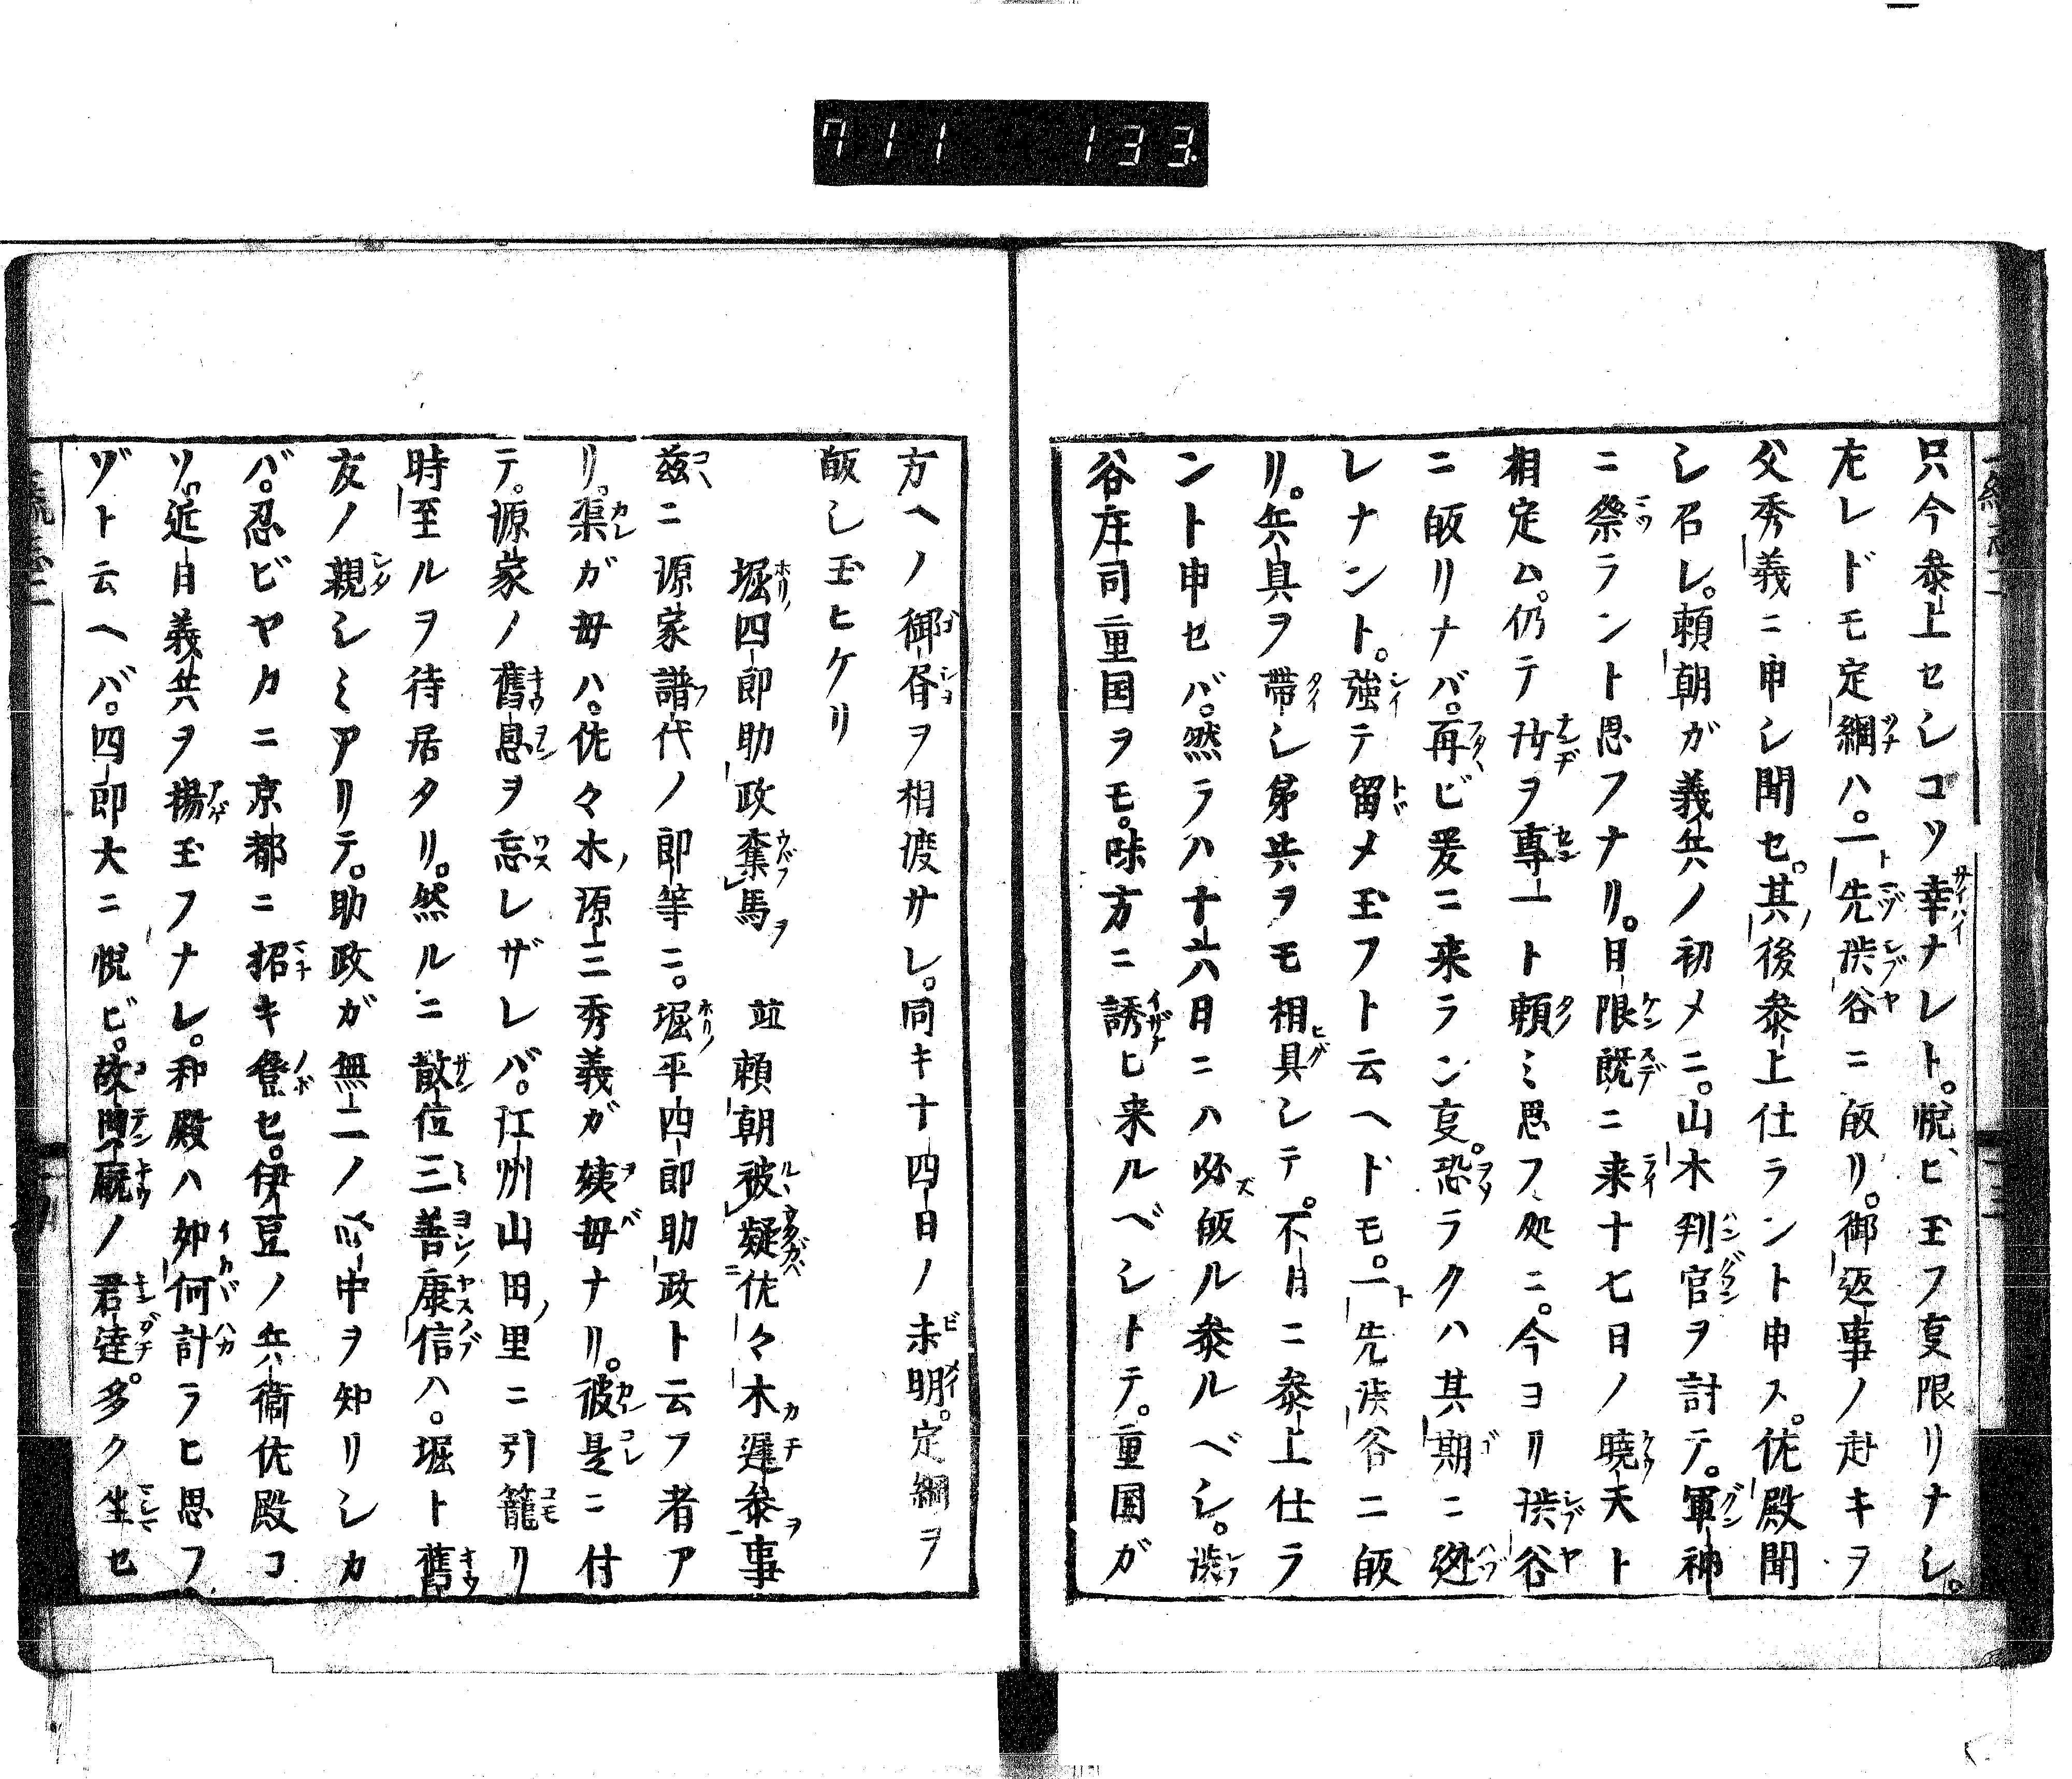 711 133
只今參上セシコソ幸ナレト。悅ヒ玉フ叓限リナシ。
尤レドモ定綱ハ。一先渋谷ニ皈リ。御返事ノ赴キヲ
父秀義ニ申シ聞セ。其後參上仕ラント申ス。佐殿聞
シ召レ。頼朝ガ義兵ノ初メニ。山木判官ヲ討テ。軍神
ニ祭ラント思フナリ。日限既ニ来十七日ノ曉天ト
相定ム。仍テ汝ヲ專一ト頼ミ思フ処ニ。今ヨリ渋谷
ニ皈リナバ。再ビ爰ニ来ラン叓。恐ラクハ其期ニ迯
レナント。強テ留メ玉フト云ヘドモ。一先渋谷ニ皈
リ。兵具ヲ帶シ弟共ヲモ相具シテ。不日ニ參上仕ラ
ント申セバ。然ラハ十六日ニハ必皈ル參ルベシ。渋
谷庄司重国ヲモ。味方ニ誘ヒ来ルベシトテ。重国ガ
方ヘノ御昏ヲ相渡サレ。同キ十四日ノ未明。定綱ヲ
皈シ玉ヒケリ
堀四郎助政奪馬 並頼朝被疑佐々木遲參事
茲ニ源家譜代ノ郎等ニ。堀平四郎助政ト云フ者ア
リ。渠ガ母ハ。佐々木源三秀義ガ姨母ナリ。彼是ニ付
テ。源家ノ舊恩ヲ忘レザレバ。江州山田里ニ引籠リ
時至ルヲ待居タリ。然ルニ散位三善康信ハ。堀ト舊
友ノ親シミアリテ。助政ガ無二ノ心中ヲ知リシカ
バ。忍ビヤカニ京都ニ招キ登セ。伊豆ノ兵衞佐殿コ
ソ。近日義兵ヲ揚玉フナレ。和殿ハ如何計ラヒ思フ
ゾト云ヘバ。四郎大ニ悅ビ。故典廐ノ君達。多ク坐セ